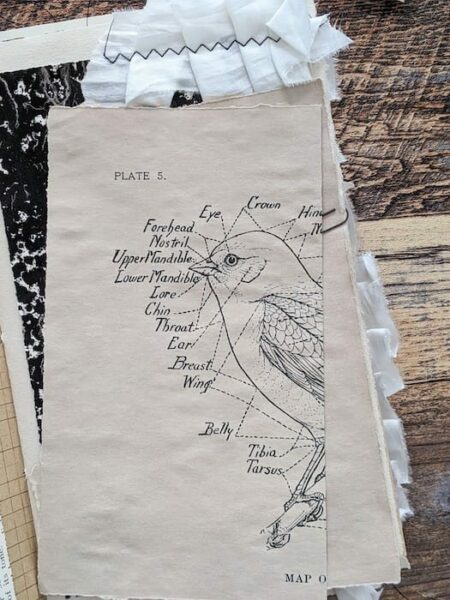 PLATE 5.
Crown
Eye
Forehead
Nostril
Upper Mandible
Lower Mandible
Lore
Chin
Throat
Ear
Breast
Wing
Belly
Tibia
Tarsus
MAP O